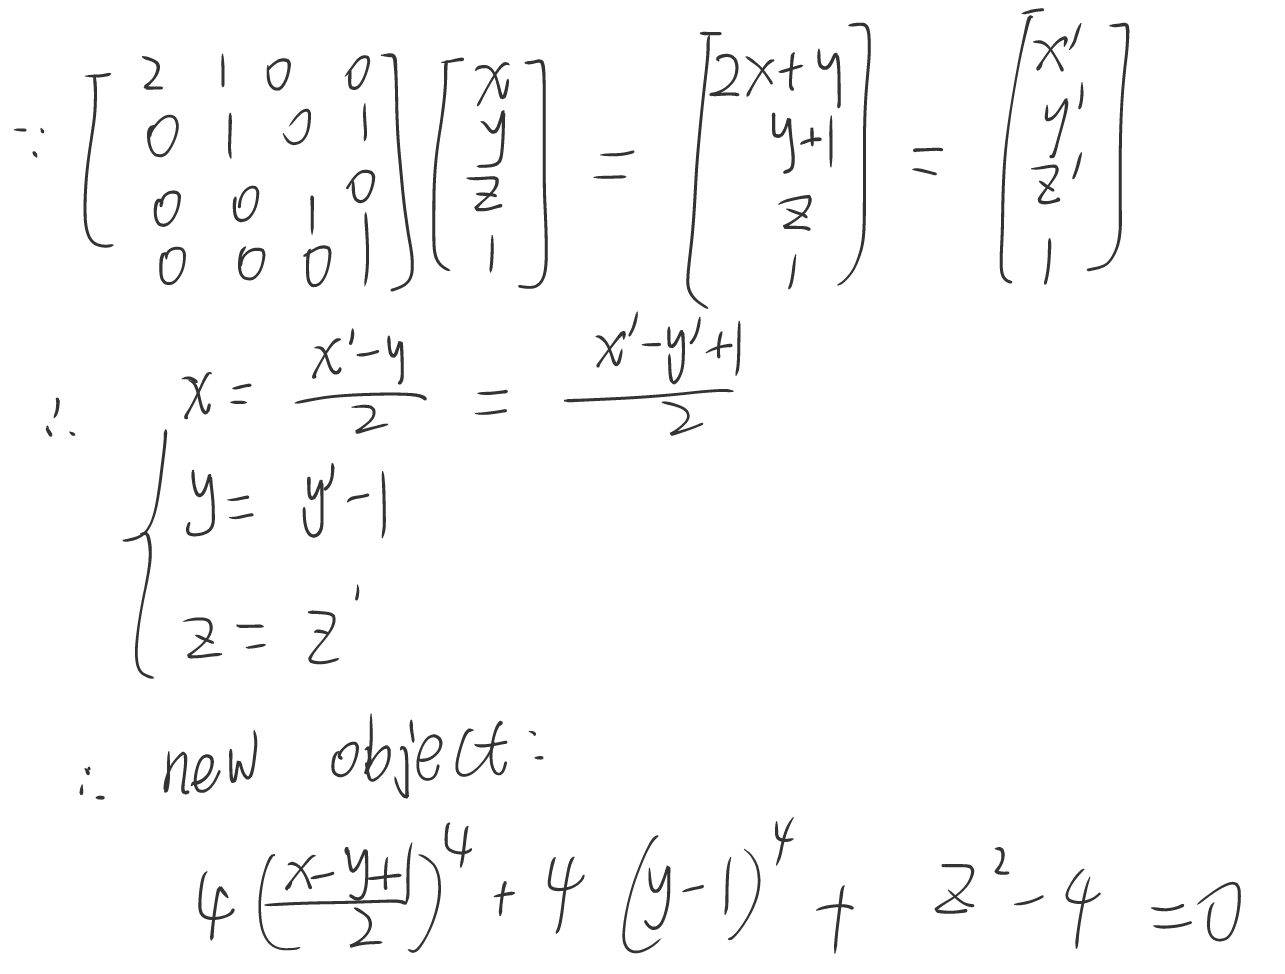 ∵ [2 1 0 0; 0 1 0 1; 0 0 1 0; 0 0 0 1] [x; y; z; 1] = [2x+y; y+1; z; 1] = [x'; y'; z'; 1]
∴ { x = (x'-y)/2 = (x'-y'+1)/2
y = y'-1
z = z'
∴ new object:
4((x-y+1)/2)^4 + 4(y-1)^4 + z^2 - 4 = 0